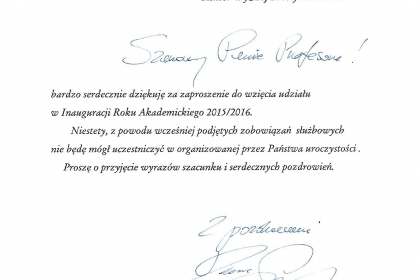 Szanowny Panie Profesorze!
bardzo serdecznie dziękuję za zaproszenie do wzięcia udziału
w Inauguracji Roku Akademickiego 2015/2016.
Niestety, z powodu wcześniej podjętych zobowiązań służbowych
nie będę mógł uczestniczyć w organizowanej przez Państwa uroczystości .
Proszę o przyjęcie wyrazów szacunku i serdecznych pozdrowień.
Z pozdrowieniami